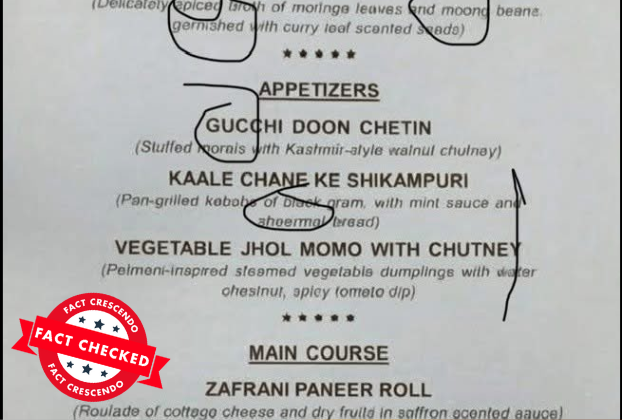 (Delicately spiced broth of moringa leaves and moong beans,
garnished with curry leaf scented seeds)
*****
APPETIZERS
GUCCHI DOON CHETIN
(Stuffed morels with Kashmir-style walnut chutney)
KAALE CHANE KE SHIKAMPURI
(Pan-grilled kebabs of black gram, with mint sauce and
sheermal bread)
VEGETABLE JHOL MOMO WITH CHUTNEY
(Pelmeni-inspired steamed vegetable dumplings with water
chestnut, spicy tomato dip)
*****
MAIN COURSE
ZAFRANI PANEER ROLL
(Roulade of cottage cheese and dry fruits in saffron scented sauce)
FACT CRESCENDO
FACT CHECKED
FACT CRESCENDO